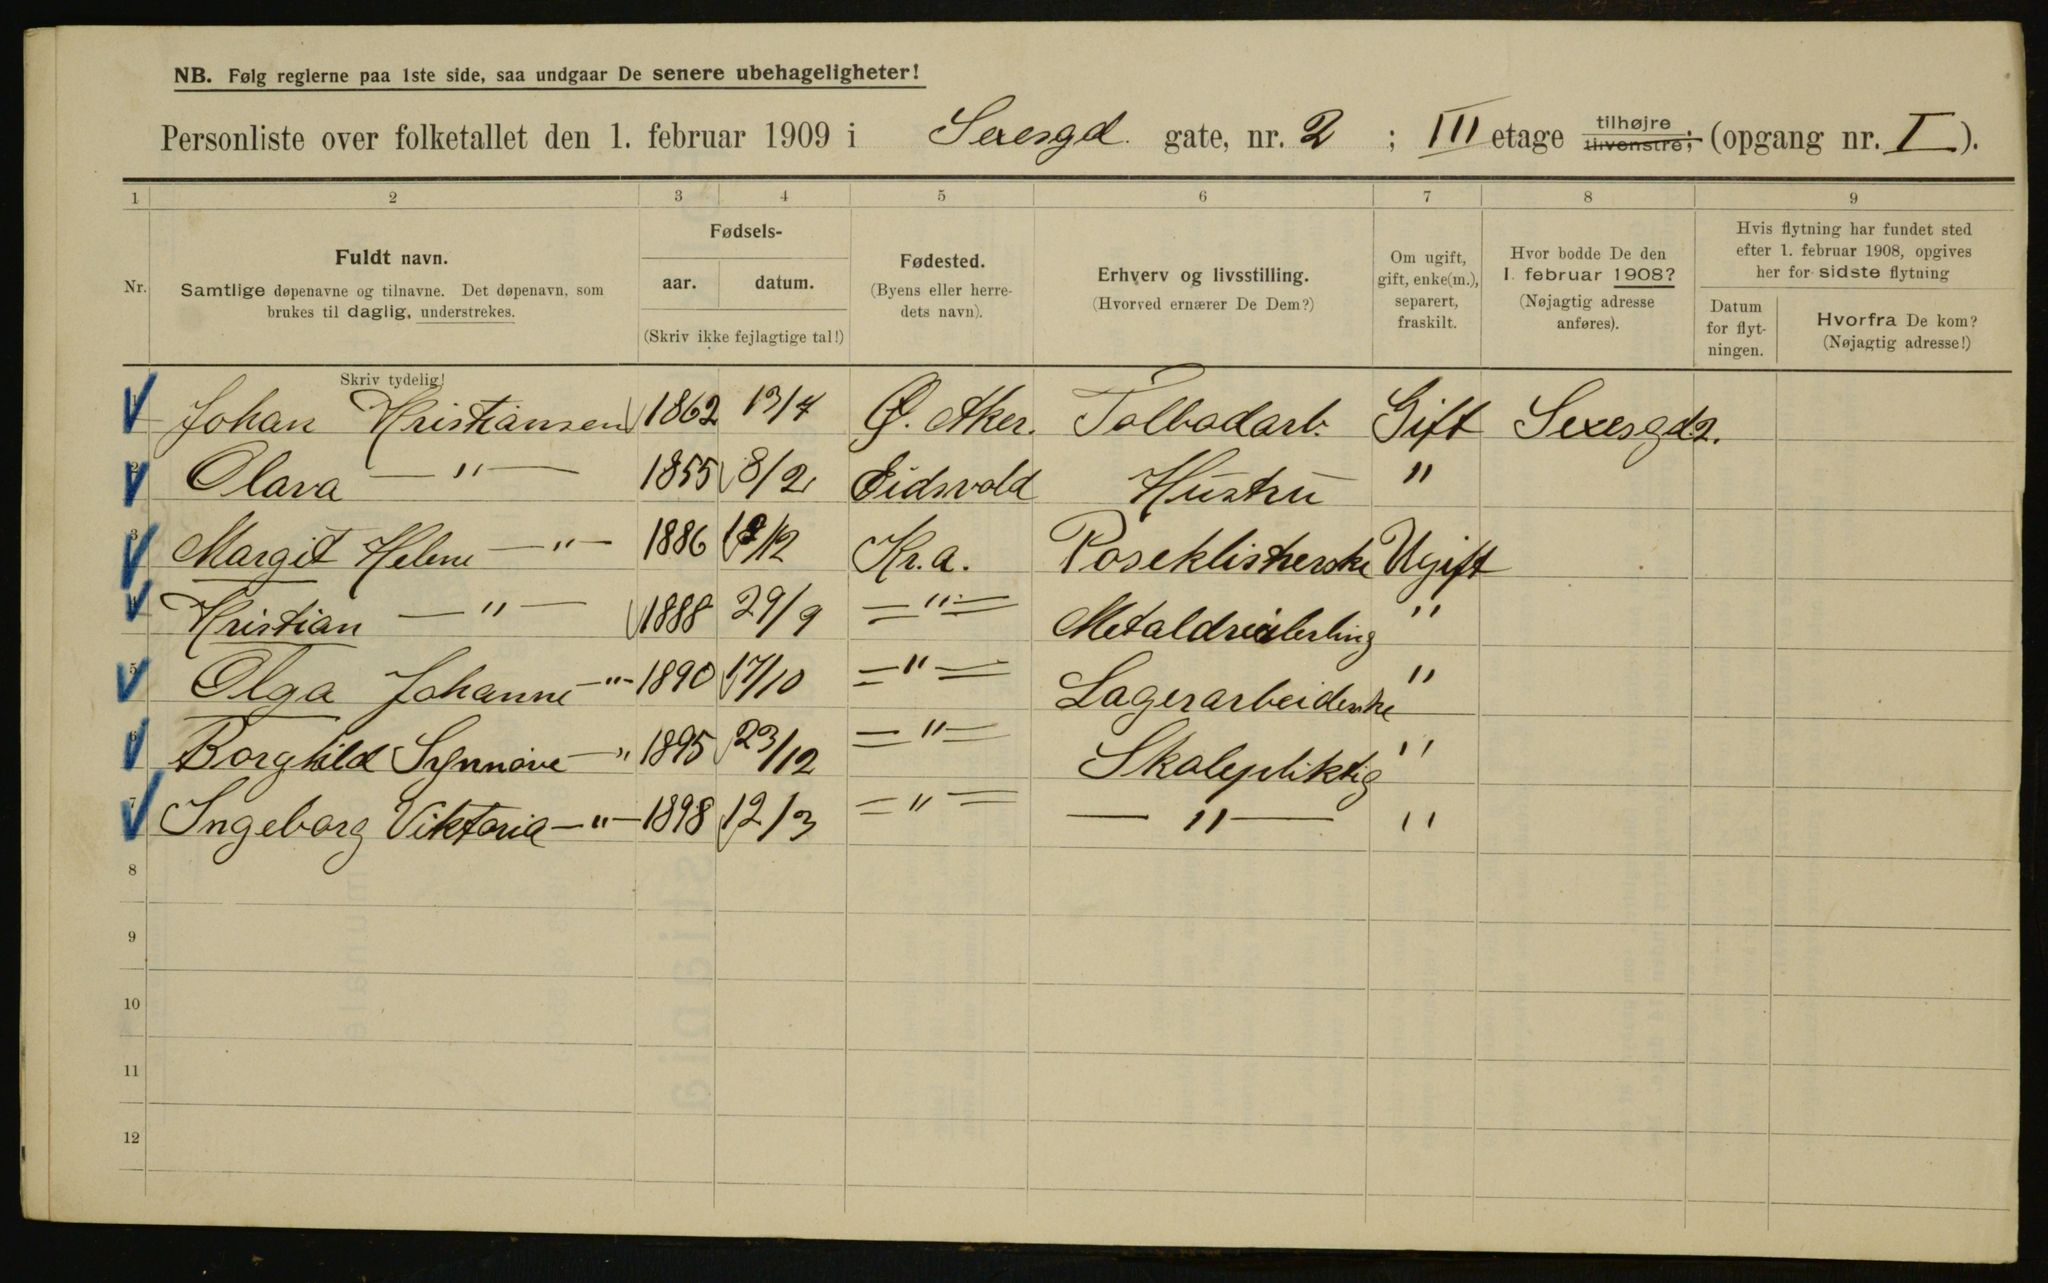 NB. Følg reglerne paa 1ste side, saa undgaar De senere ubehageligheter!
Personliste over folketallet den 1. februar 1909 i Sexesgd. gate, nr. 2 ; III etage tilhøjre tilvenstre; (opgang nr. I).
1 2 3 4 5 6 7 8 9
Nr.
Fuldt navn.
Samtlige døpenavne og tilnavne. Det døpenavn, som
brukes til daglig, understrekes.
Fødsels-
aar. datum.
(Skriv ikke fejlagtige tal!)
Fødested.
(Byens eller herre-
dets navn).
Erhverv og livsstilling.
(Hvorved ernærer De Dem?)
Om ugift,
gift, enke(m.),
separert,
fraskilt.
Hvor bodde De den
1. februar 1908?
(Nøjagtig adresse
anføres).
Hvis flytning har fundet sted
efter 1. februar 1908, opgives
her for sidste flytning
Datum
for flyt-
ningen.
Hvorfra De kom?
(Nøjagtig adresse!)
Skriv tydelig!
Johan Kristiansen 1862 13/7 Ø. Aker. Tolbodarb. Gift Sexesgd 2.
2 Olava — " — 1855 8/2 Eidsvold Hustru "
3 Margit Helene — " — 1886 /12 Kr.a. Poseklisterske Ugift
4 Kristian — " — 1888 29/9 — " — "
5 Olga Johanne — " — 1890 17/10 — " — Lagerarbeiderske "
6 Borghild Synnøve — " 1895 23/12 — " — Skolepliktig "
7 Ingeborg Viktoria — " — 1898 12/3 — " — — " — "
8
9
10
11
12